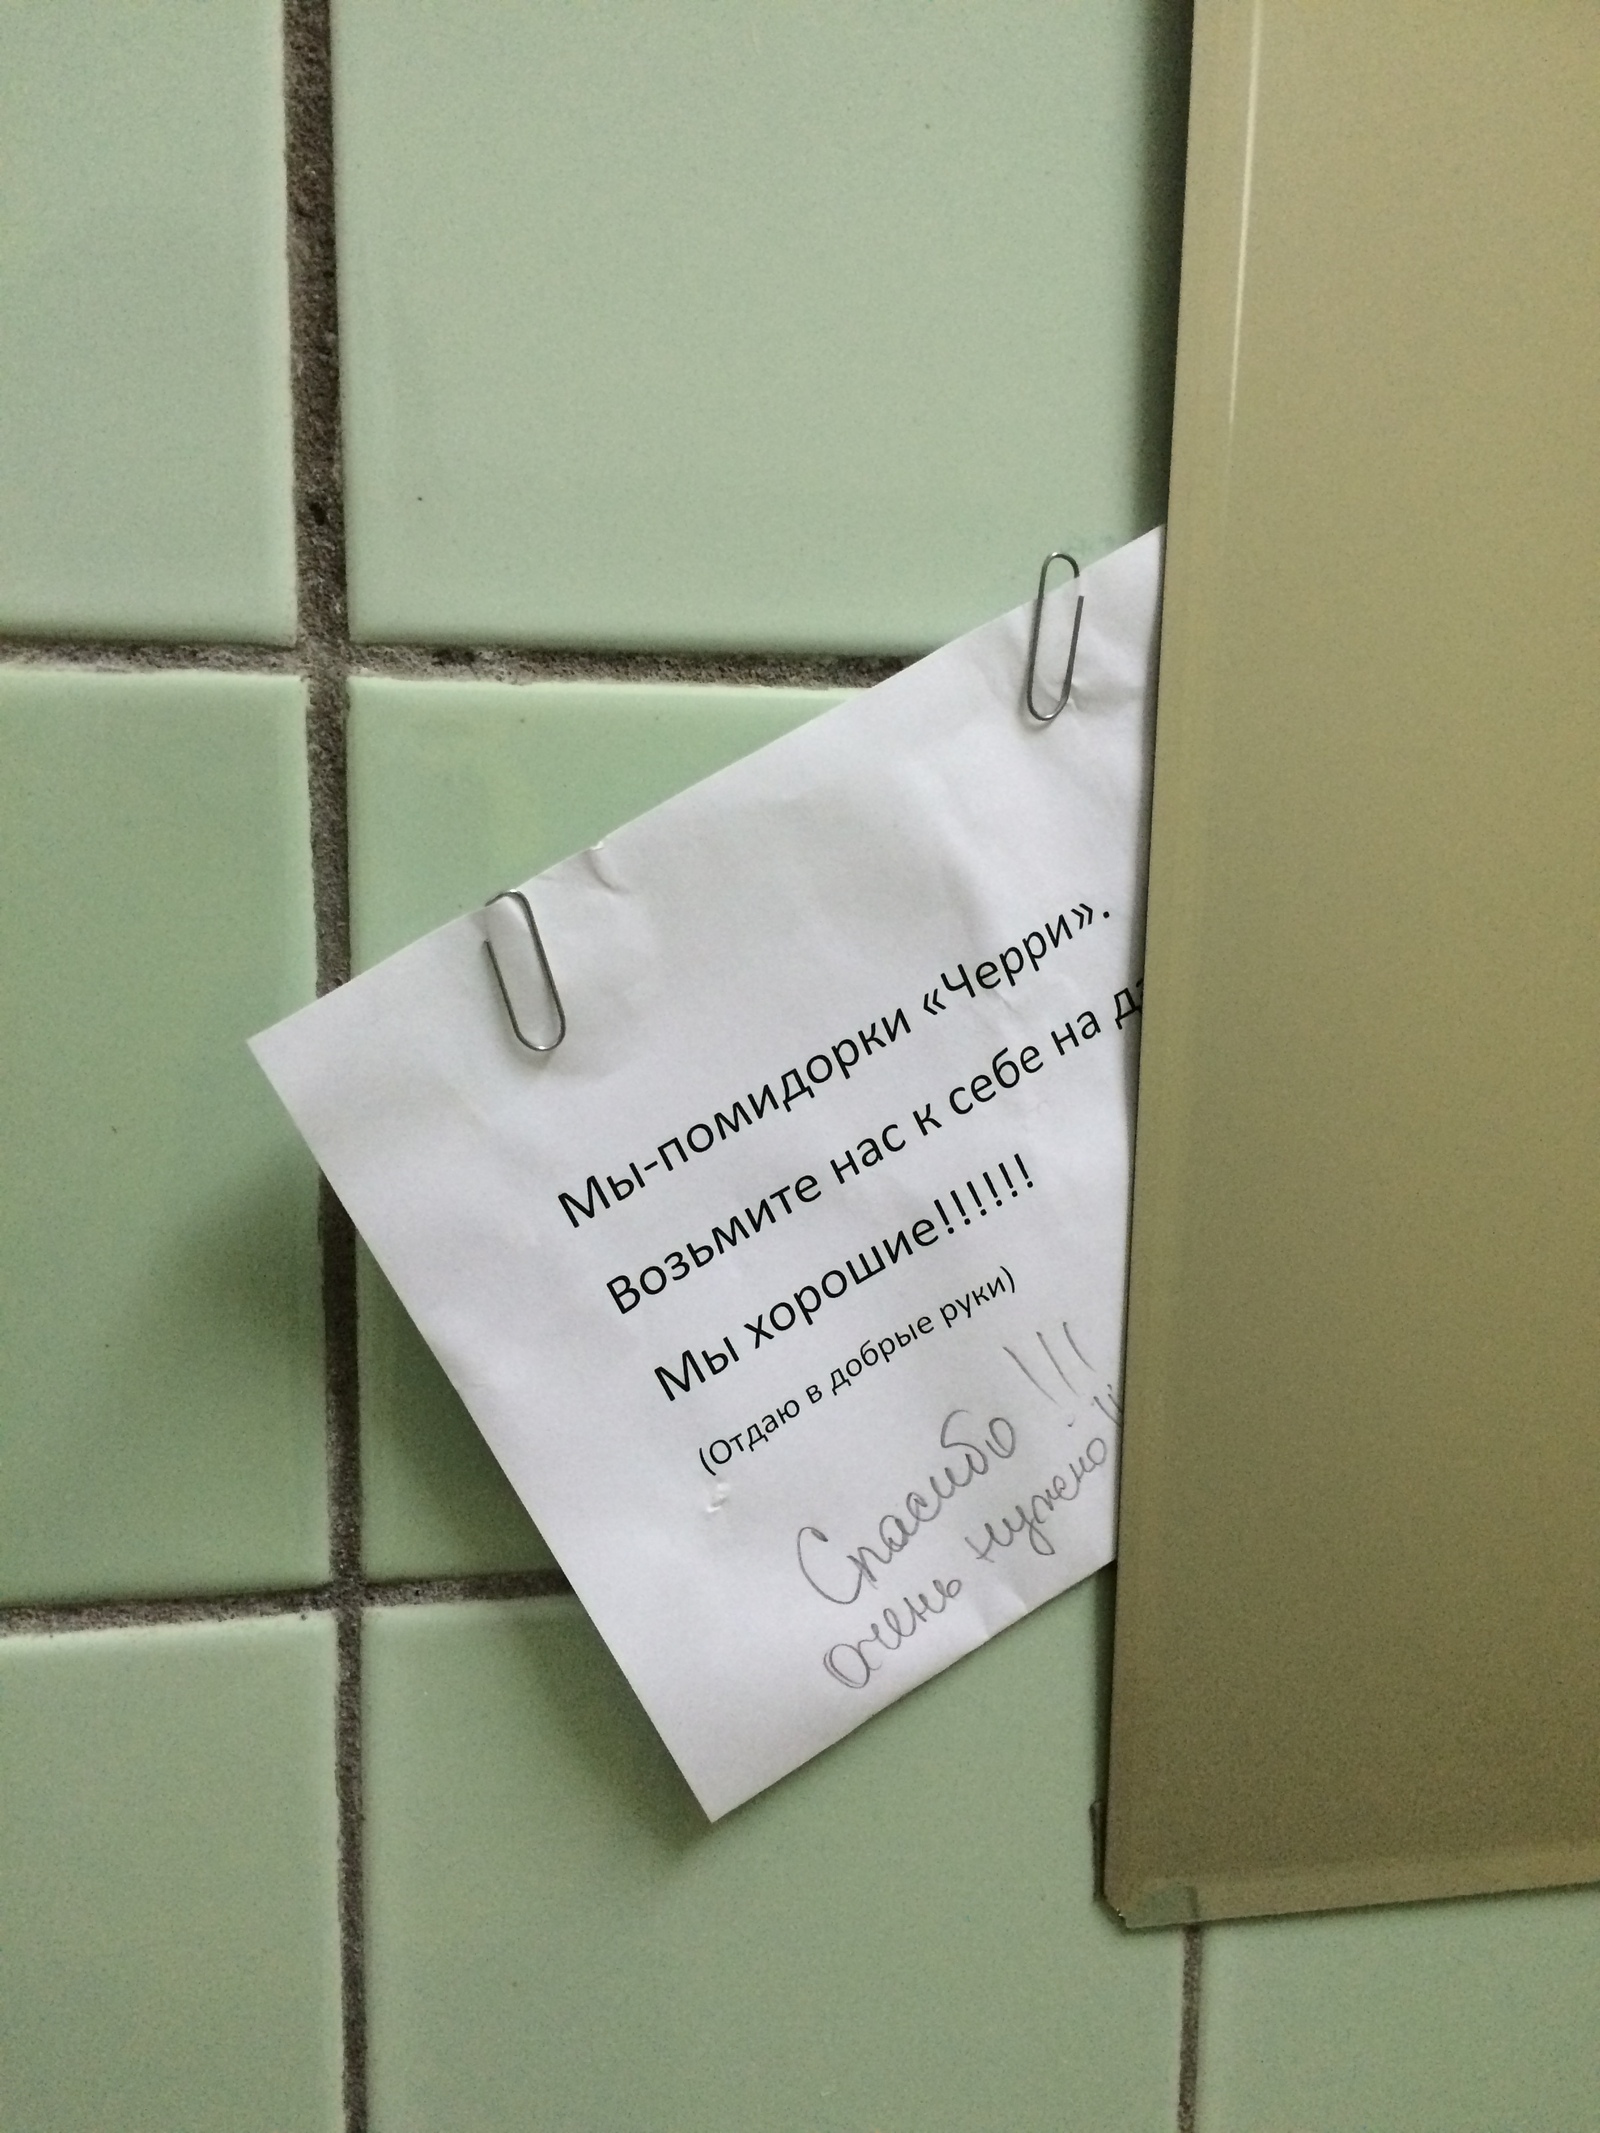 Мы-помидорки «Черри».
Возьмите нас к себе на
Мы хорошие!!!!!!
(Отдаю в добрые руки)
Спасибо!!!
очень нужно!!!